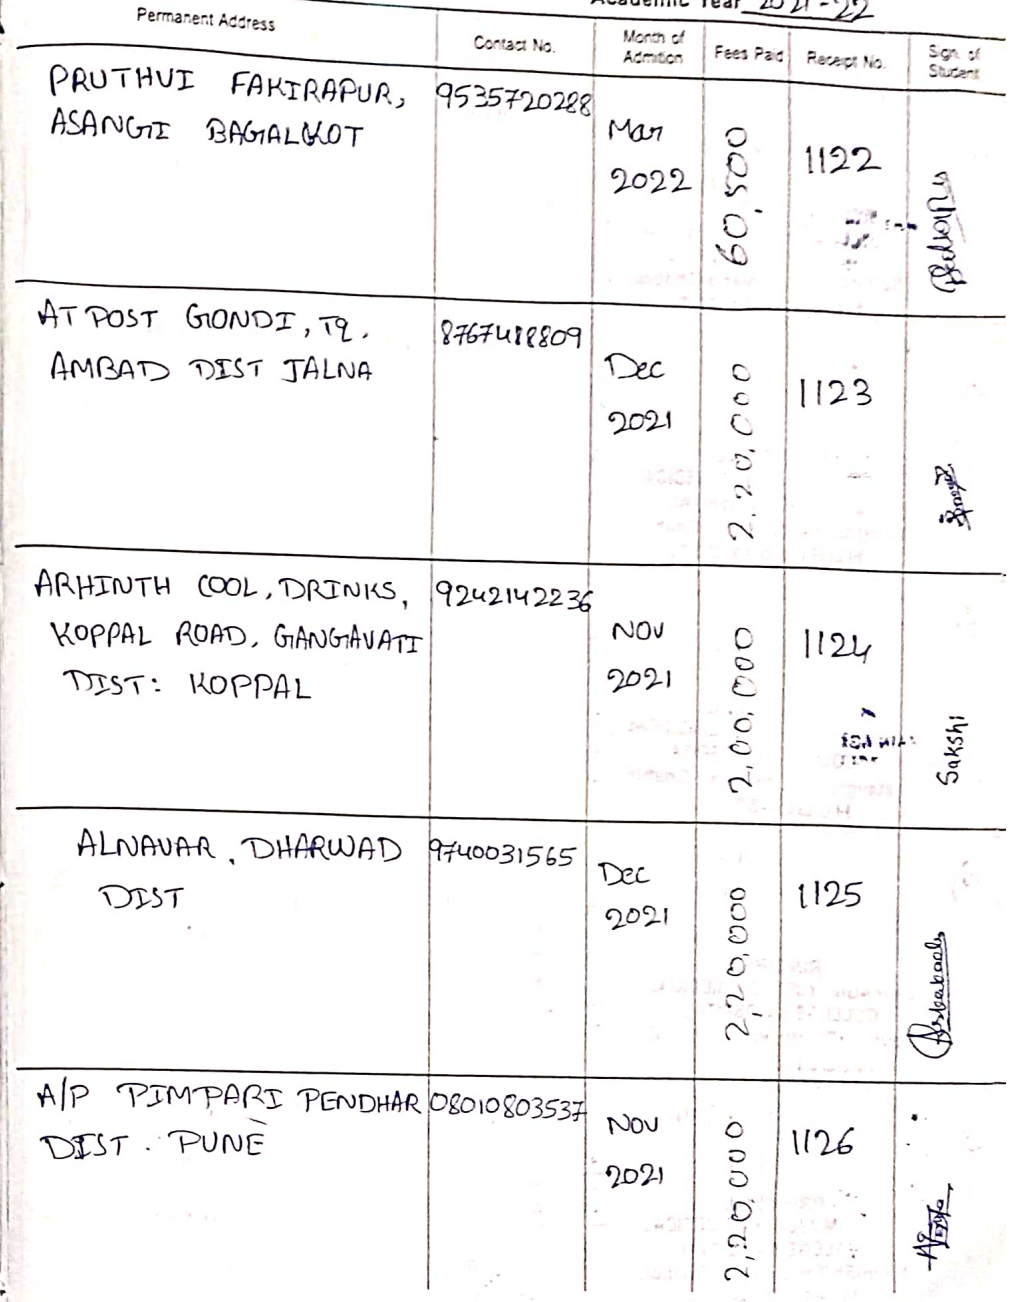 Academic Year 2021-22
Permanent Address
Contact No.
Month of
Admition
Fees Paid
Receipt No.
Sign. of
Student
PRUTHVI FAKIRAPUR,
ASANGI BAGALKOT
9535720288
Mar
2022
60,500
1122
AT POST GONDI, TQ.
AMBAD DIST JALNA
8767488809
Dec
2021
2,20,000
1123
ARHINTH COOL, DRINKS,
KOPPAL ROAD, GANGAVATI
DIST: KOPPAL
9242142236
NOV
2021
2,00,000
1124
Sakshi
ALNAVAR, DHARWAD
DIST
9740031565
Dec
2021
2,20,000
1125
A/P PIMPARI PENDHAR
DIST. PUNE
08010803537
NOV
2021
2,20,000
1126